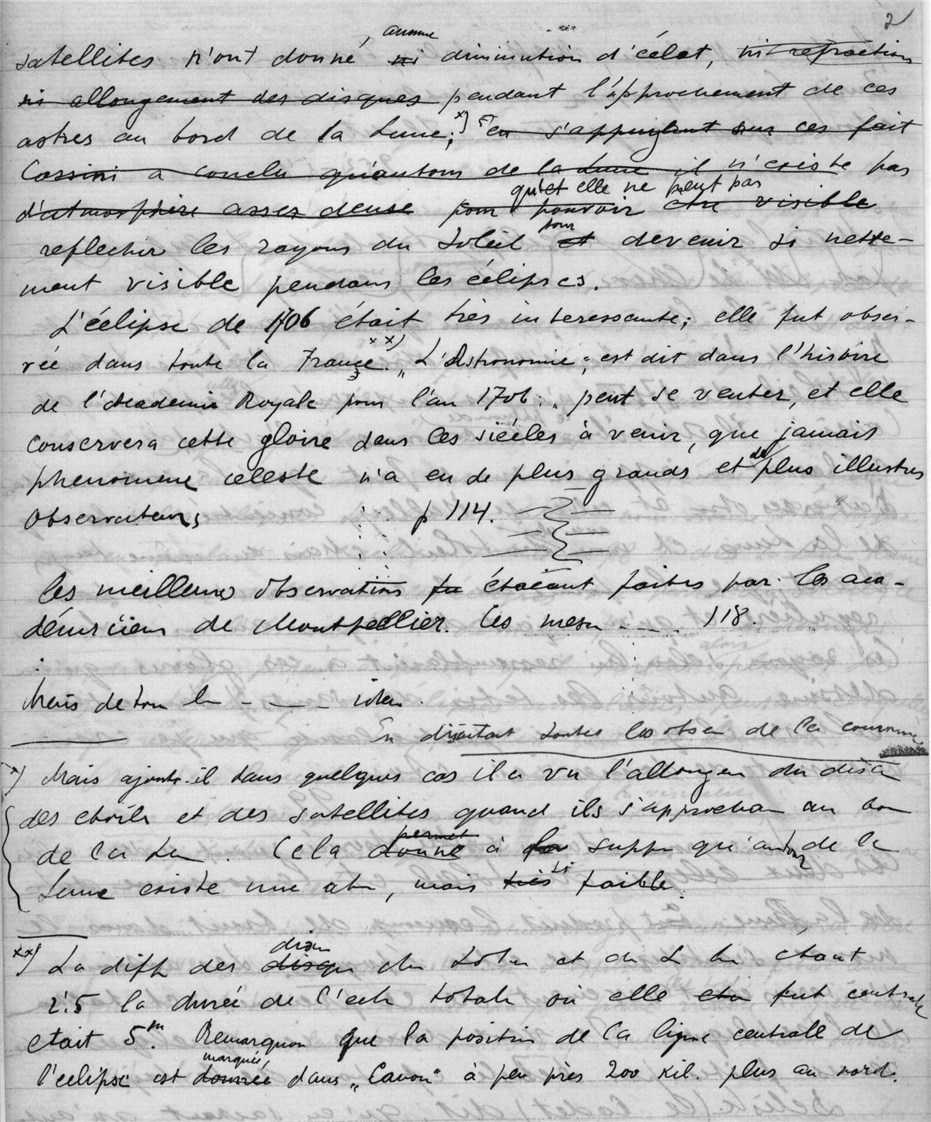 2
satellites n'ont donné, aucune ni diminution d'éclat, ni refraction
ni allongement des disques pendant l'approchement de ces
astres au bord de la Lune; x) en s'appuyant sur ces fait
Cassini a conclu qu'autour de la Lune il n'existe pas
d'atmosphère assez dense pour pouvoir être visible
qui et elle ne peut pas
reflechir les rayons du Soleil et pour devenir si nette-
ment visible pendans les éclipses.
L'éclipse de 1706 était très interessante; elle fut obser-
vée dans toute la France. xx) „L'Astronomie", est dit dans l'histoire
de l'Academie Royale pour l'an 1706: „peut se venter, et elle
conservera cette gloire dans les siècles à venir, que jamais
phenomene celeste n'a eu de plus grands, et de plus illustres
Observateurs
p 114.
les meilleures observations fu étaient faites par les aca-
démiciens de Montpellier. Ces mesu - - - 118.
Mais de tou le - - -
En disctant toutes les obser de la couronne
x) Mais ajoute-il dans quelques cas il a vu l'allongem du disc
des etoile et des satellites quand ils s'approchan au bo
de la Lu. Cela donne permet à la supp qu'autour de la
Lune existe une atm, mais très si faible.
xx) La diff des disqu diam du Sole et de la Lu etant
2'.5 la durée de l'ecli totale où elle eta fut centrale
etait 5m. Remarquon que la position de la ligne centrale de
l'eclipse est donnée marquée, dans „Canon" à peu près 200 kil. plus au nord.